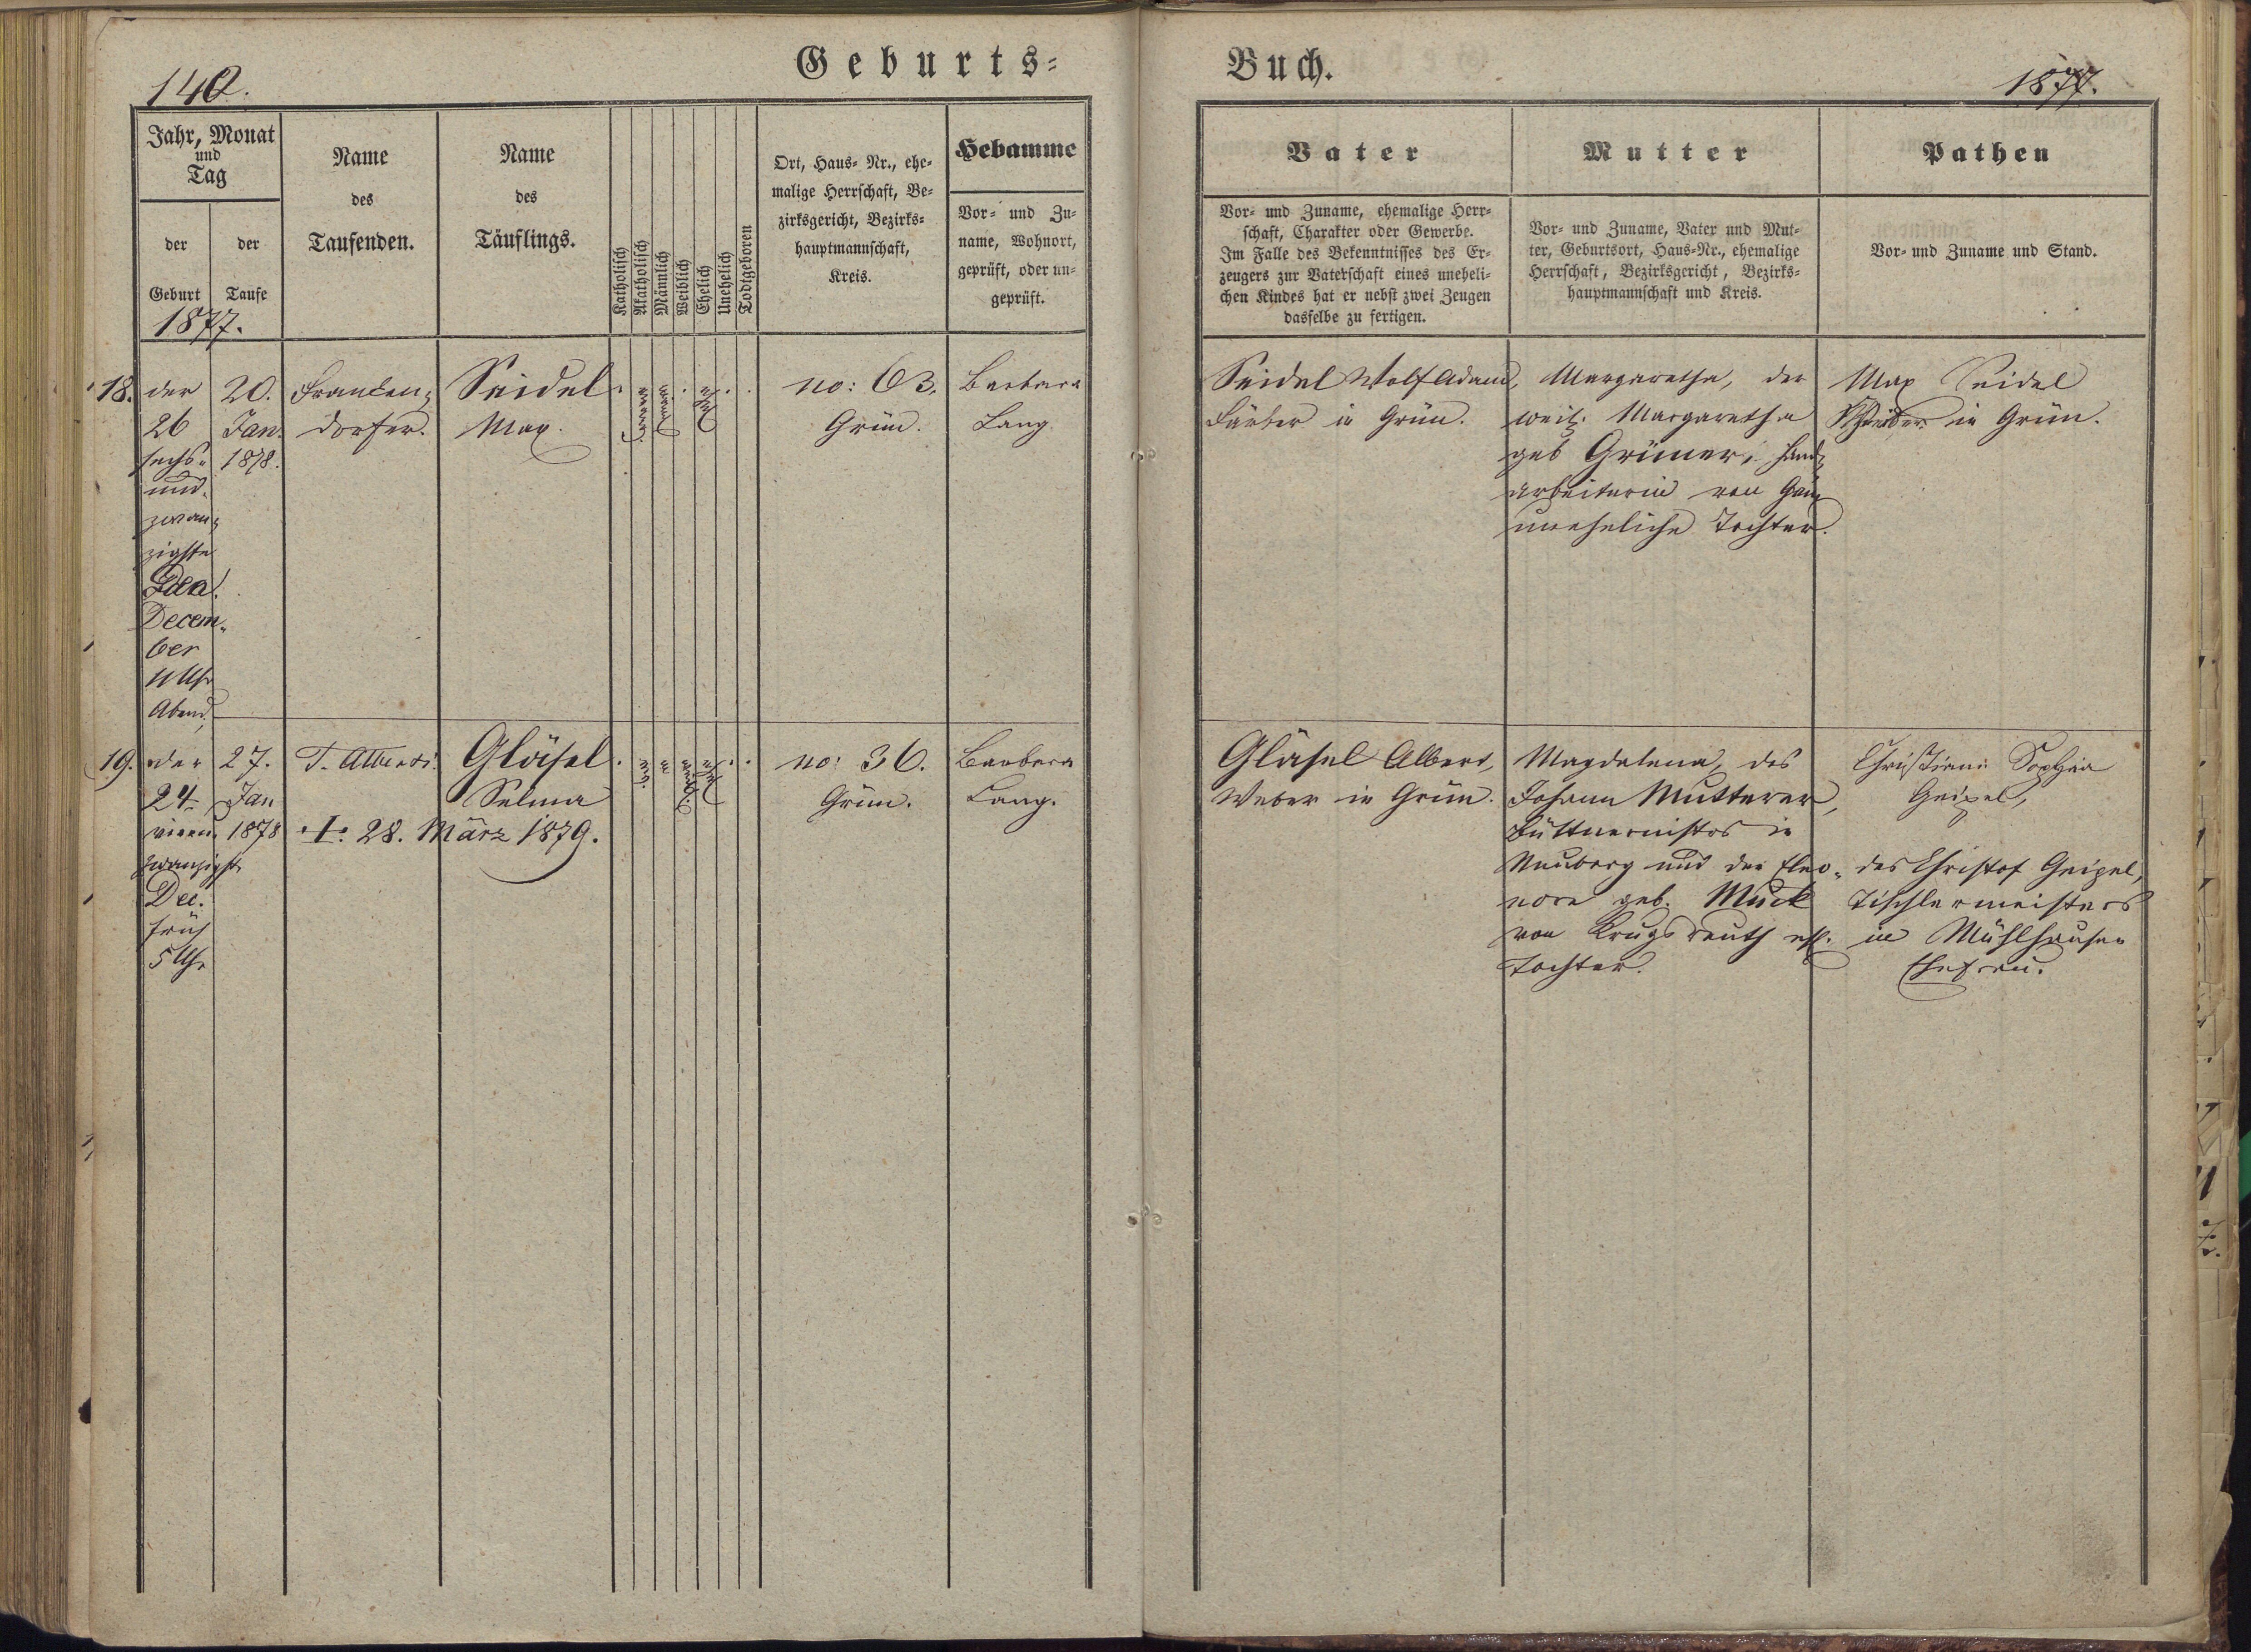 Geburts=
Buch.
140.
1877.
Jahr, Monat
und
Tag
der
Geburt
der
Taufe
1877.
Name
des
Taufenden.
Name
des
Täuflings.
Katholisch
Akatholisch
Männlich
Weiblich
Ehelich
Unehelich
Todtgeboren
Ort, Haus= Nr., ehe=
malige Herrschaft, Be=
zirksgericht, Bezirks=
hauptmannschaft,
Kreis.
Hebamme
Vor= und Zu=
name, Wohnort,
geprüft, oder un=
geprüft.
Vater
Vor= und Zuname, ehemalige Herr=
schaft, Charakter oder Gewerbe.
Im Falle des Bekenntnisses des Er=
zeugers zur Vaterschaft eines uneheli=
chen Kindes hat er nebst zwei Zeugen
dasselbe zu fertigen.
Mutter
Vor= und Zuname, Vater und Mut=
ter, Geburtsort, Haus=Nr., ehemalige
Herrschaft, Bezirksgericht, Bezirks=
hauptmannschaft und Kreis.
Pathen
Vor= und Zuname und Stand.
18.
der
26
sechs=
und
zwan=
zigste
Decem=
ber
11 Uhr
Abend
20.
Jan.
1878.
Franken=
dorfer.
Seidel
Max.
no: 63.
Grün.
Barbara
Lang
Seidel Wolf Adam,
Färber in Grün.
Margaretha, der
weil. Margaretha
geb Grüner, Hand=
arbeiterin von Grün
uneheliche Tochter.
Max Seidel
in Grün.
19.
der
24
vierund
zwanzigste
Dec.
früh
5 Uhr
27.
Jan
1878
T. Alberti.
Gläsel
Selma
28. März 1879.
no: 36.
Grün.
Barbara
Lang.
Gläsel Albert,
Weber in Grün.
Magdalena, des
Johann Mutterer,
Büttnermstrs in
Neuberg und der Eleo=
nore geb. Muck
von Krugsreuth ehl.
Tochter.
Christiane Sophia
Geipel,
des Christof Geipel,
Tischlermeisters
in Mühlhausen
Ehefrau.